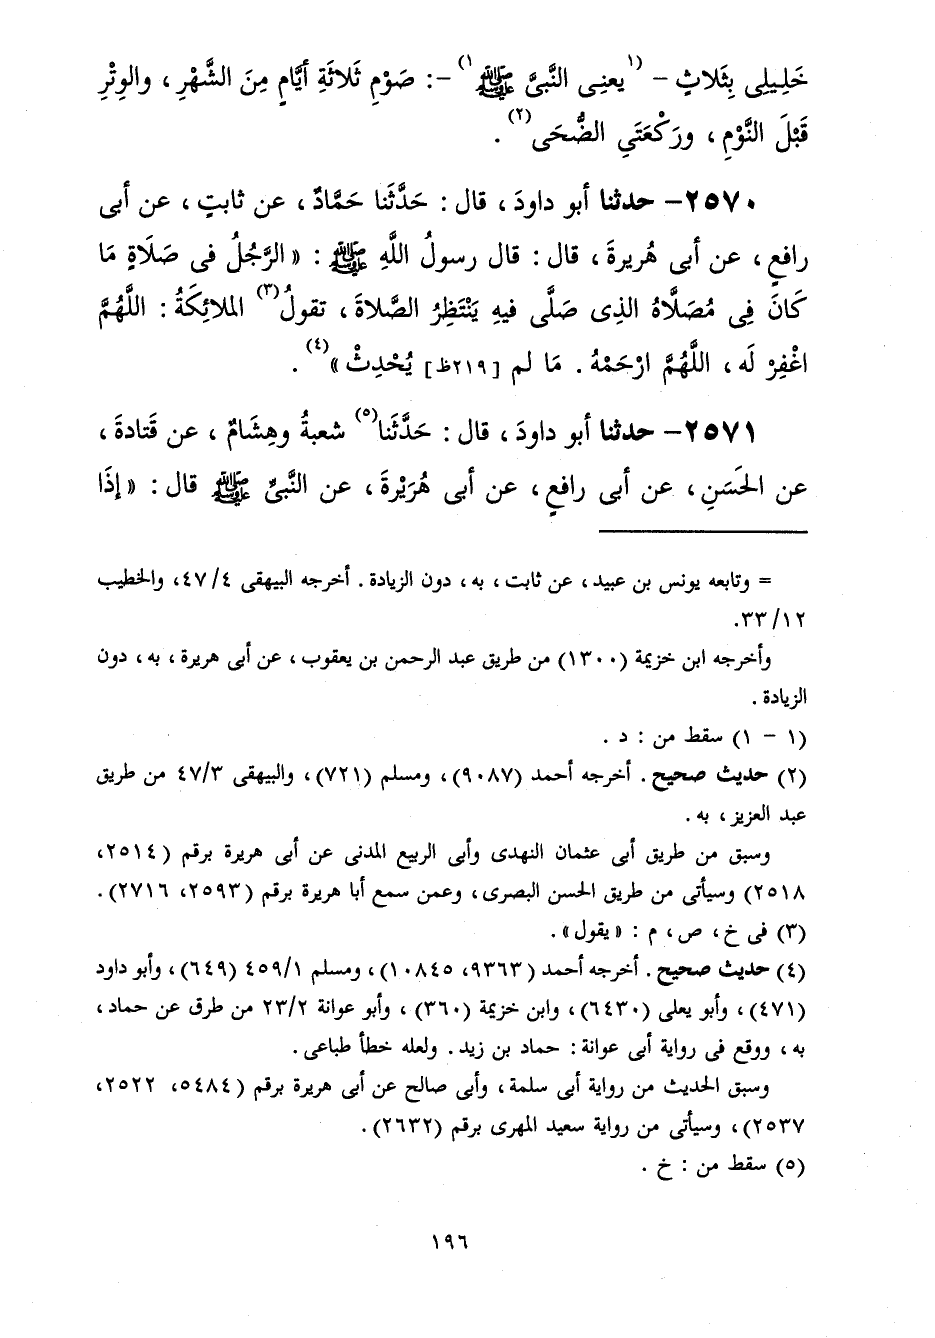 خَلِيلِى بِثَلاثٍ – (١يعنِى النَّبىَّ ﷺ١) –: صَوْمِ ثَلاثَةِ أيَّامٍ مِنَ الشَّهْرِ ، والوِتْرِ
قَبْلَ النَّوْمِ ، ورَكْعَتَيِ الضُّحَى(٢) .
٢٥٧٠– حدثنا أبو داودَ ، قال : حَدَّثَنا حَمَّادٌ ، عن ثابتٍ ، عن أبى
رافعٍ ، عن أبى هُريرةَ ، قال : قال رسولُ اللَّهِ ﷺ : « الرَّجُلُ فى صَلَاةٍ مَا
كَانَ فِى مُصَلَّاهُ الذِى صَلَّى فيهِ يَنْتَظِرُ الصَّلاةَ ، تقولُ(٣) الملائِكَةُ : اللَّهُمَّ
اغْفِرْ لَه ، اللَّهُمَّ ارْحَمْهُ . مَا لم [٢١٩ظ] يُحْدِثْ »(٤) .
٢٥٧١– حدثنا أبو داودَ ، قال : حَدَّثَنا(٥) شعبةُ وهِشَامٌ ، عن قَتادةَ ،
عن الحَسَنِ ، عن أبى رافعٍ ، عن أبى هُرَيْرةَ ، عن النَّبىِّ ﷺ قال : « إذَا
= وتابعه يونس بن عبيد ، عن ثابت ، به ، دون الزيادة . أخرجه البيهقى ٤٧/٤، والخطيب
٣٣/١٢.
وأخرجه ابن خزيمة (١٣٠٠) من طريق عبد الرحمن بن يعقوب ، عن أبى هريرة ، به ، دون
الزيادة .
(١ – ١) سقط من : د .
(٢) حديث صحيح . أخرجه أحمد (٩٠٨٧) ، ومسلم (٧٢١) ، والبيهقى ٤٧/٣ من طريق
عبد العزيز ، به .
وسبق من طريق أبى عثمان النهدى وأبى الربيع المدنى عن أبى هريرة برقم (٢٥١٤،
٢٥١٨) وسيأتى من طريق الحسن البصرى ، وعمن سمع أبا هريرة برقم (٢٥٩٣، ٢٧١٦) .
(٣) فى خ ، ص ، م : « يقول » .
(٤) حديث صحيح . أخرجه أحمد (٩٣٦٣، ١٠٨٤٥) ، ومسلم ٤٥٩/١ (٦٤٩) ، وأبو داود
(٤٧١) ، وأبو يعلى (٦٤٣٠) ، وابن خزيمة (٣٦٠) ، وأبو عوانة ٢٣/٢ من طرق عن حماد ،
به ، ووقع فى رواية أبى عوانة : حماد بن زيد . ولعله خطأ طباعى .
وسبق الحديث من رواية أبى سلمة ، وأبى صالح عن أبى هريرة برقم (٥٤٨٤، ٢٥٢٢،
٢٥٣٧) ، وسيأتى من رواية سعيد المهرى برقم (٢٦٣٢) .
(٥) سقط من : خ .
١٩٦